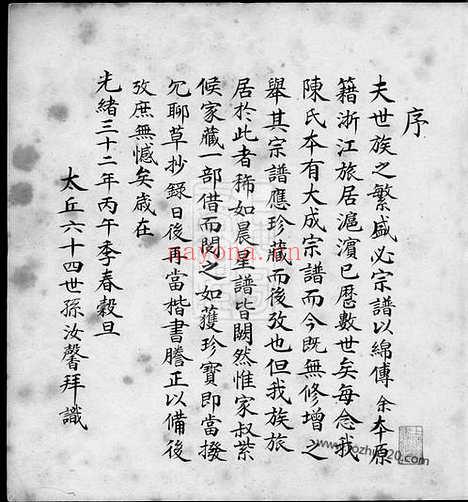 序
夫世族之繁盛必宗譜以綿傳余本原
籍浙江旅居滬濱已歷數世矣每念我
陳氏本有大成宗譜而今既無修增之
舉其宗譜應珍藏而後攷也但我族旅
居於此者稀如晨星譜皆闕然惟家叔紫
候家藏一部借而閱之如獲珍寶即當撥
冗聊草抄錄日後再當楷書謄正以備後
攷庶無憾矣歲在
光緒三十二年丙午季春穀旦
太丘六十四世孫汝馨拜識
nayona.cn